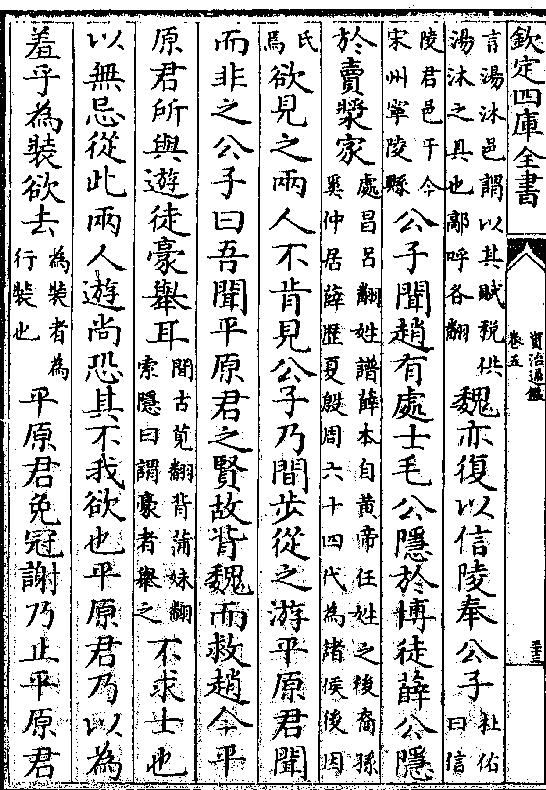 欽定四庫全書
資治通鑑
卷五
言湯沐邑謂以其賦稅供
湯沐之具也鄗呼各翻
魏亦復以信陵奉公子
杜佑
曰信
陵君邑于今
宋州寧陵縣
公子聞趙有處士毛公隱於博徒薛公隱
於賣漿家
處昌呂翻姓譜薛本自黃帝任姓之後裔孫
奚仲居薛歷夏殷周六十四代為諸侯後因
氏
焉
欲見之兩人不肯見公子乃間步從之游平原君聞
而非之公子曰吾聞平原君之賢故背魏而救趙今平
原君所與遊徒豪舉耳
間古莧翻背蒲妹翻
索隱曰謂豪者舉之
不求士也
以無忌從此兩人遊尚恐其不我欲也平原君乃以為
羞乎為裝欲去
為裝者為
行裝也
平原君免冠謝乃止平原君